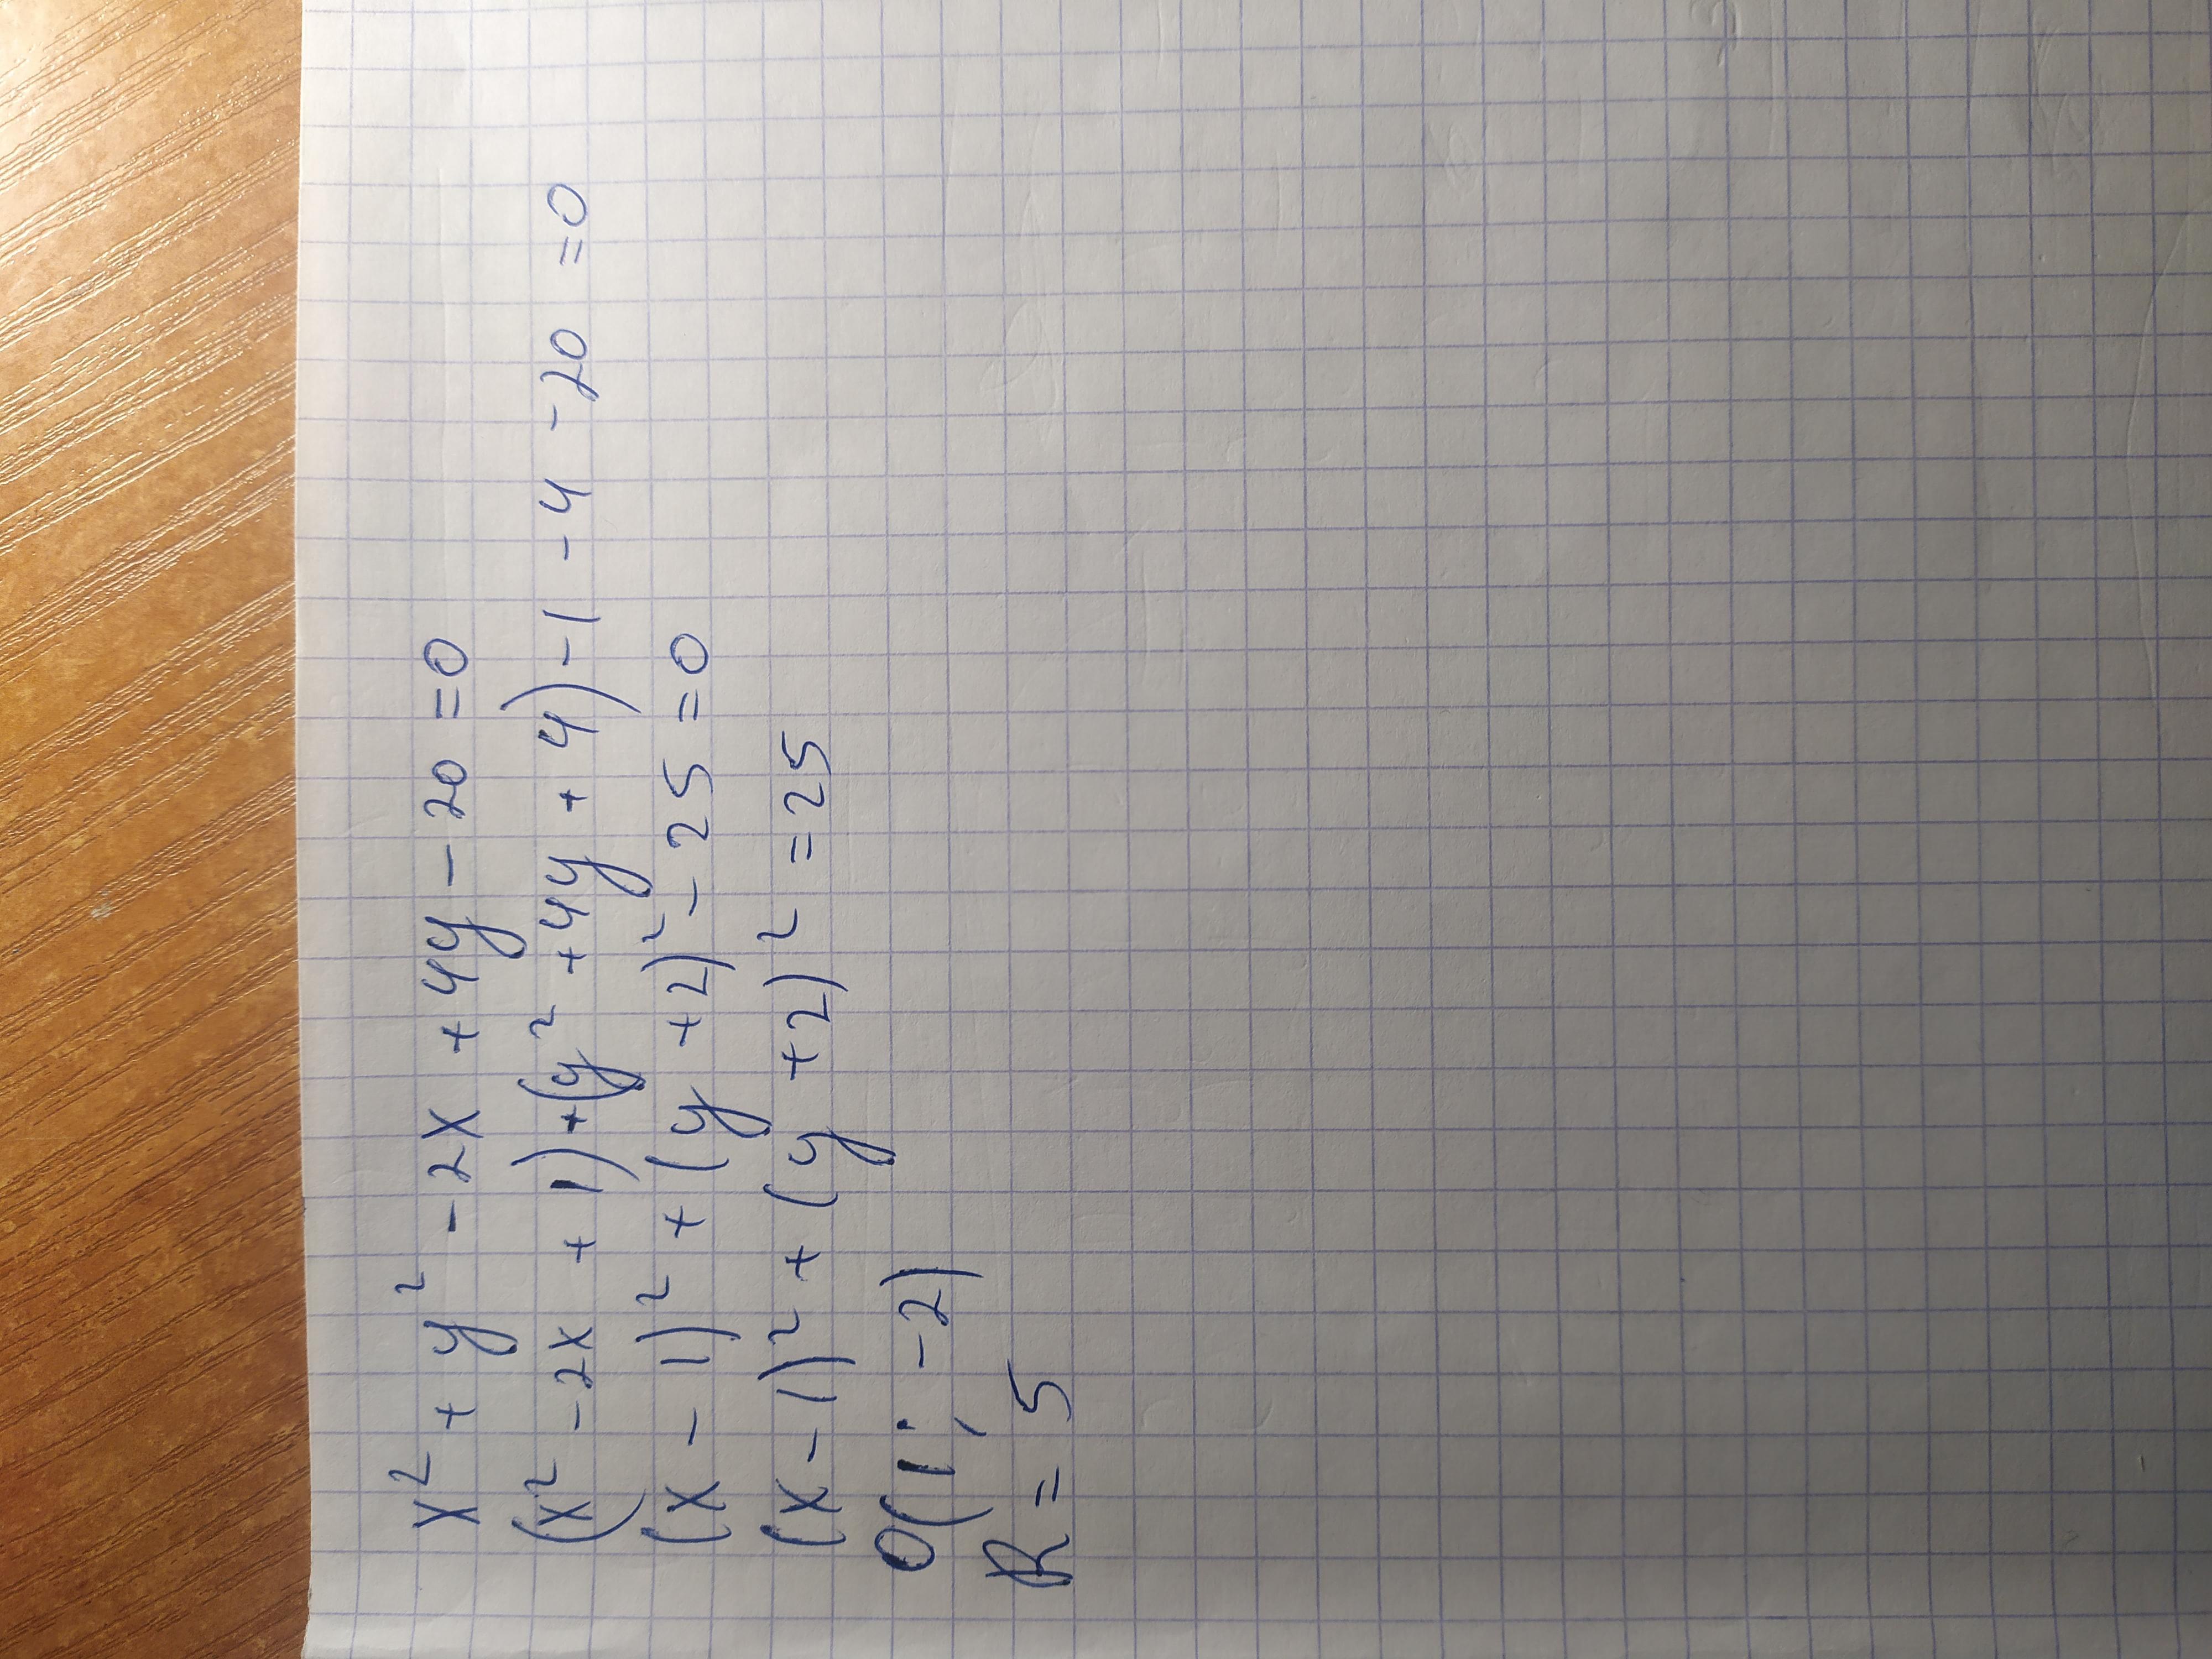 x² + y² - 2x + 4y - 20 = 0
(x² - 2x + 1) + (y² + 4y + 4) - 1 - 4 - 20 = 0
(x - 1)² + (y + 2)² - 25 = 0
(x - 1)² + (y + 2)² = 25
O(1; -2)
R = 5